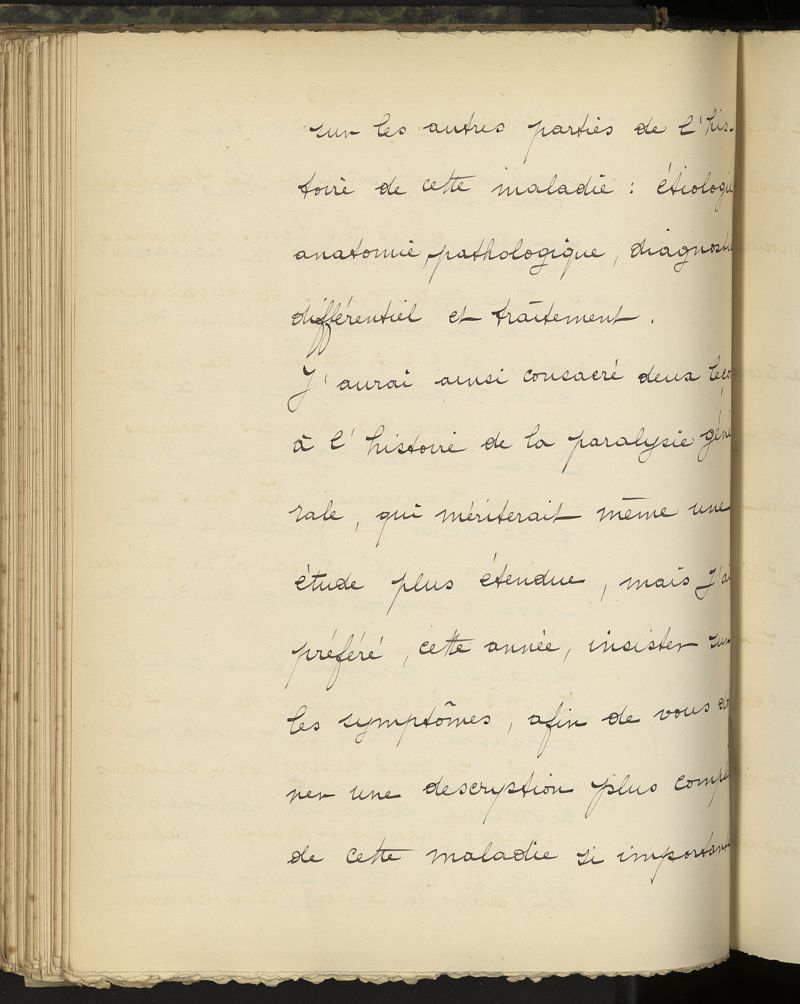 sur les autres parties de l'his-
toire de cette maladie : étiologie
anatomie pathologique, diagnostic
différentiel et traitement.
J'aurai ainsi consacré deux leço
à l'histoire de la paralysie géné
rale, qui mériterait même une
étude plus étendue, mais j'ai
préféré, cette année, insister sur
les symptômes, afin de vous do
ner une description plus complè
de cette maladie si important